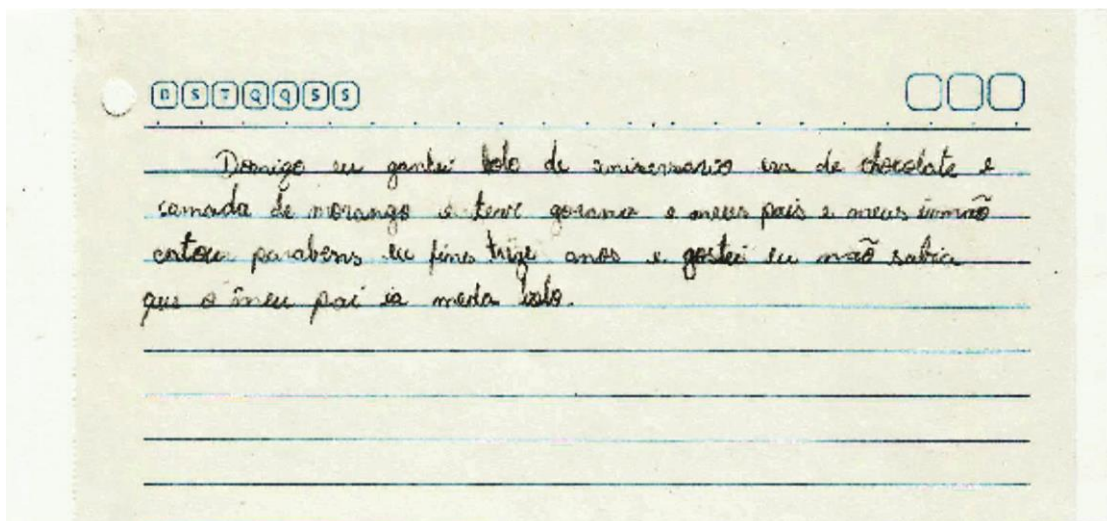 D S T Q Q S S
Domigo eu gantei bolo de aniversario era de chocolate e
camada de morango e teve gorana e meus pais e meus irmão
cotou parabens eu fines trize anos e gostei eu não sabia
que o meu pai ia menda bolo.